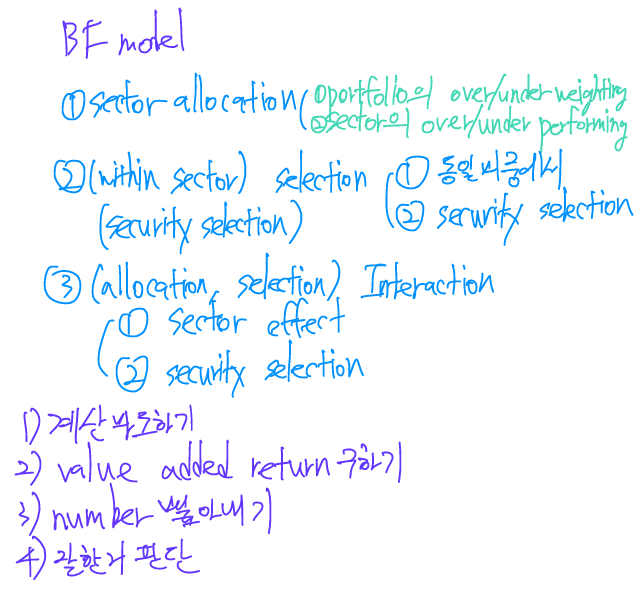 BF model
① sector allocation (①portfolio의 over/under weighting
②sector의 over/under performing
② (within sector) selection ① 동일 비중에서
(security selection) ② security selection
③ (allocation, selection) Interaction
① sector effect
② security selection
1) 계산 부호하기
2) value added return 구하기
3) number 뽑아내기
4) 잘한거 판단